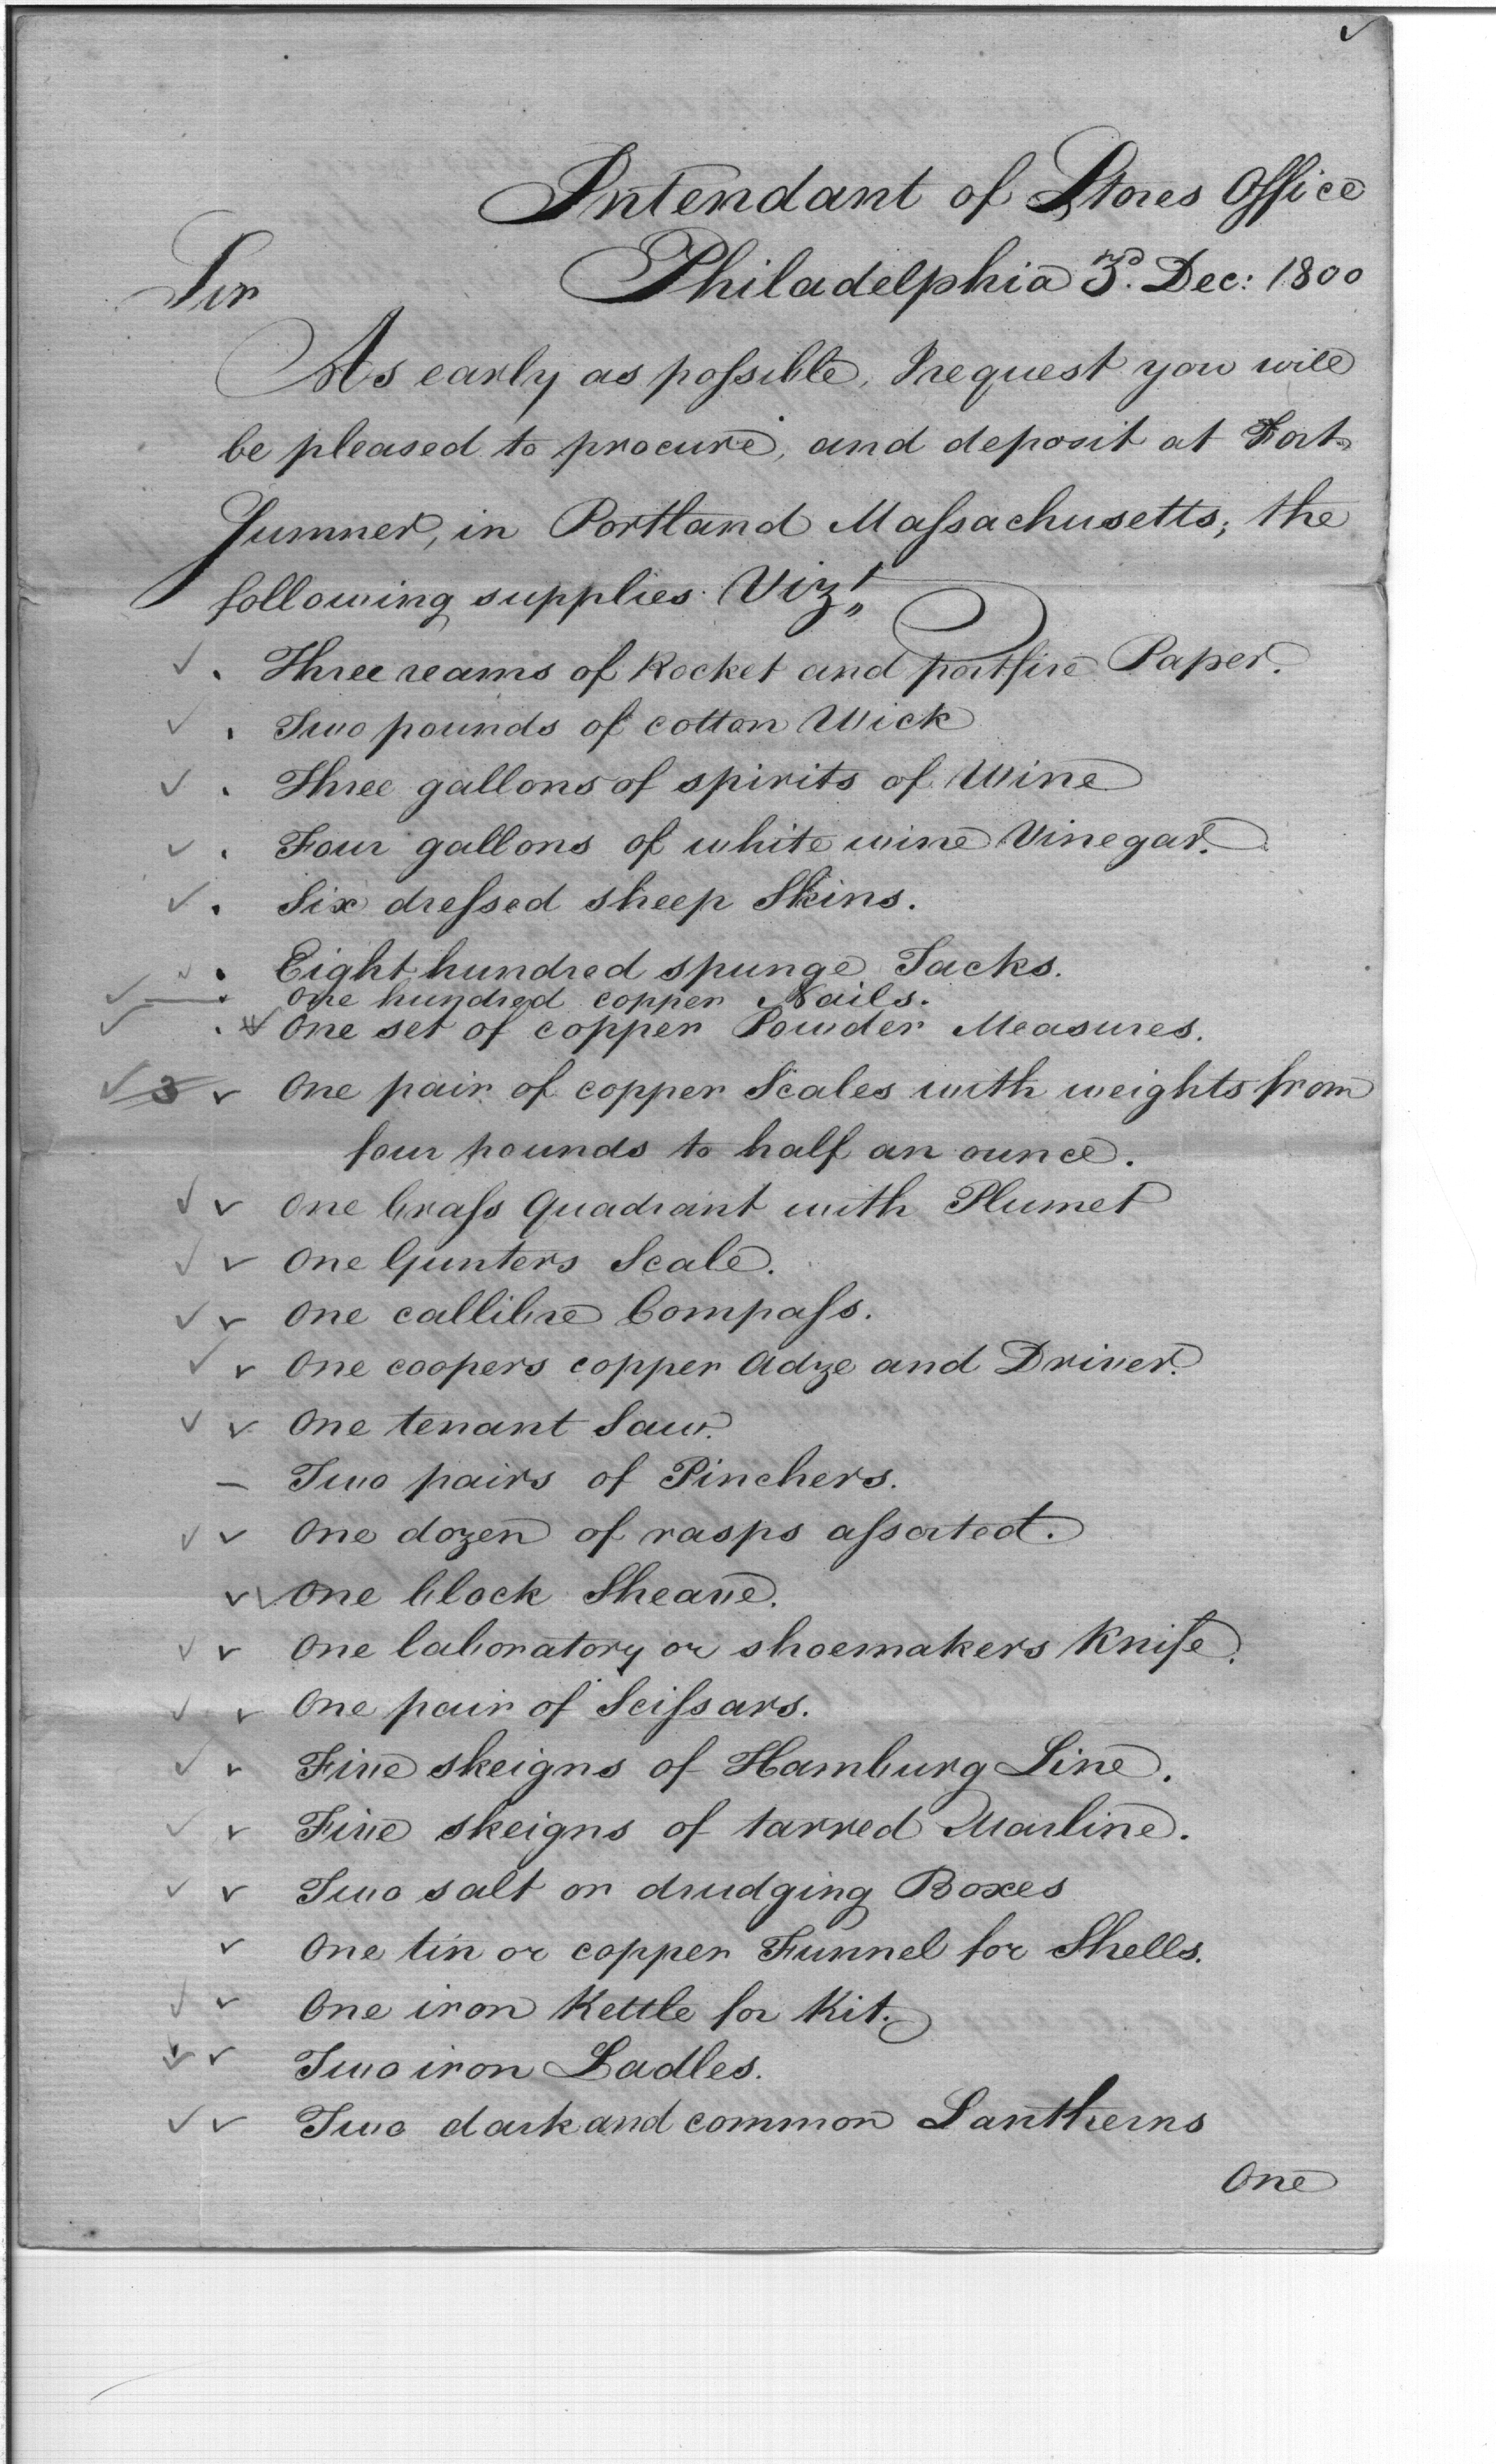 Intendant of Stores Office
Philadelphia 3rd. Dec: 1800
Sir
As early as possible, I request you will
be pleased to procure, and deposit at Fort
Sumner, in Portland Massachusetts; the
following supplies Vizt,,
Three reams of Rocket and portfire Paper.
Two pounds of cotton Wick
Three gallons of spirits of Wine
Four gallons of white wine Vinegar.
Six dressed sheep Skins.
Eight hundred spunge Tacks.
One hundred copper Nails.
One set of copper Powder Measures.
3 One pair of copper Scales with weights from
four pounds to half an ounce.
One brass Quadrant with Plumet
One Gunters Scale.
One callibre Compass.
One coopers copper Adze and Driver.
One tenant Saw.
Two pairs of Pinchers.
One dozen of rasps assorted.
One block Sheave.
One laboratory or shoemakers Knife.
One pair of Scissars.
Five skeigns of Hamburg Line.
Five skeigns of tarred Marline.
Two salt or drudging Boxes
One tin or copper Funnel for Shells.
One iron Kettle for Kit.
Two iron Ladles.
Two dark and common Lantherns
One